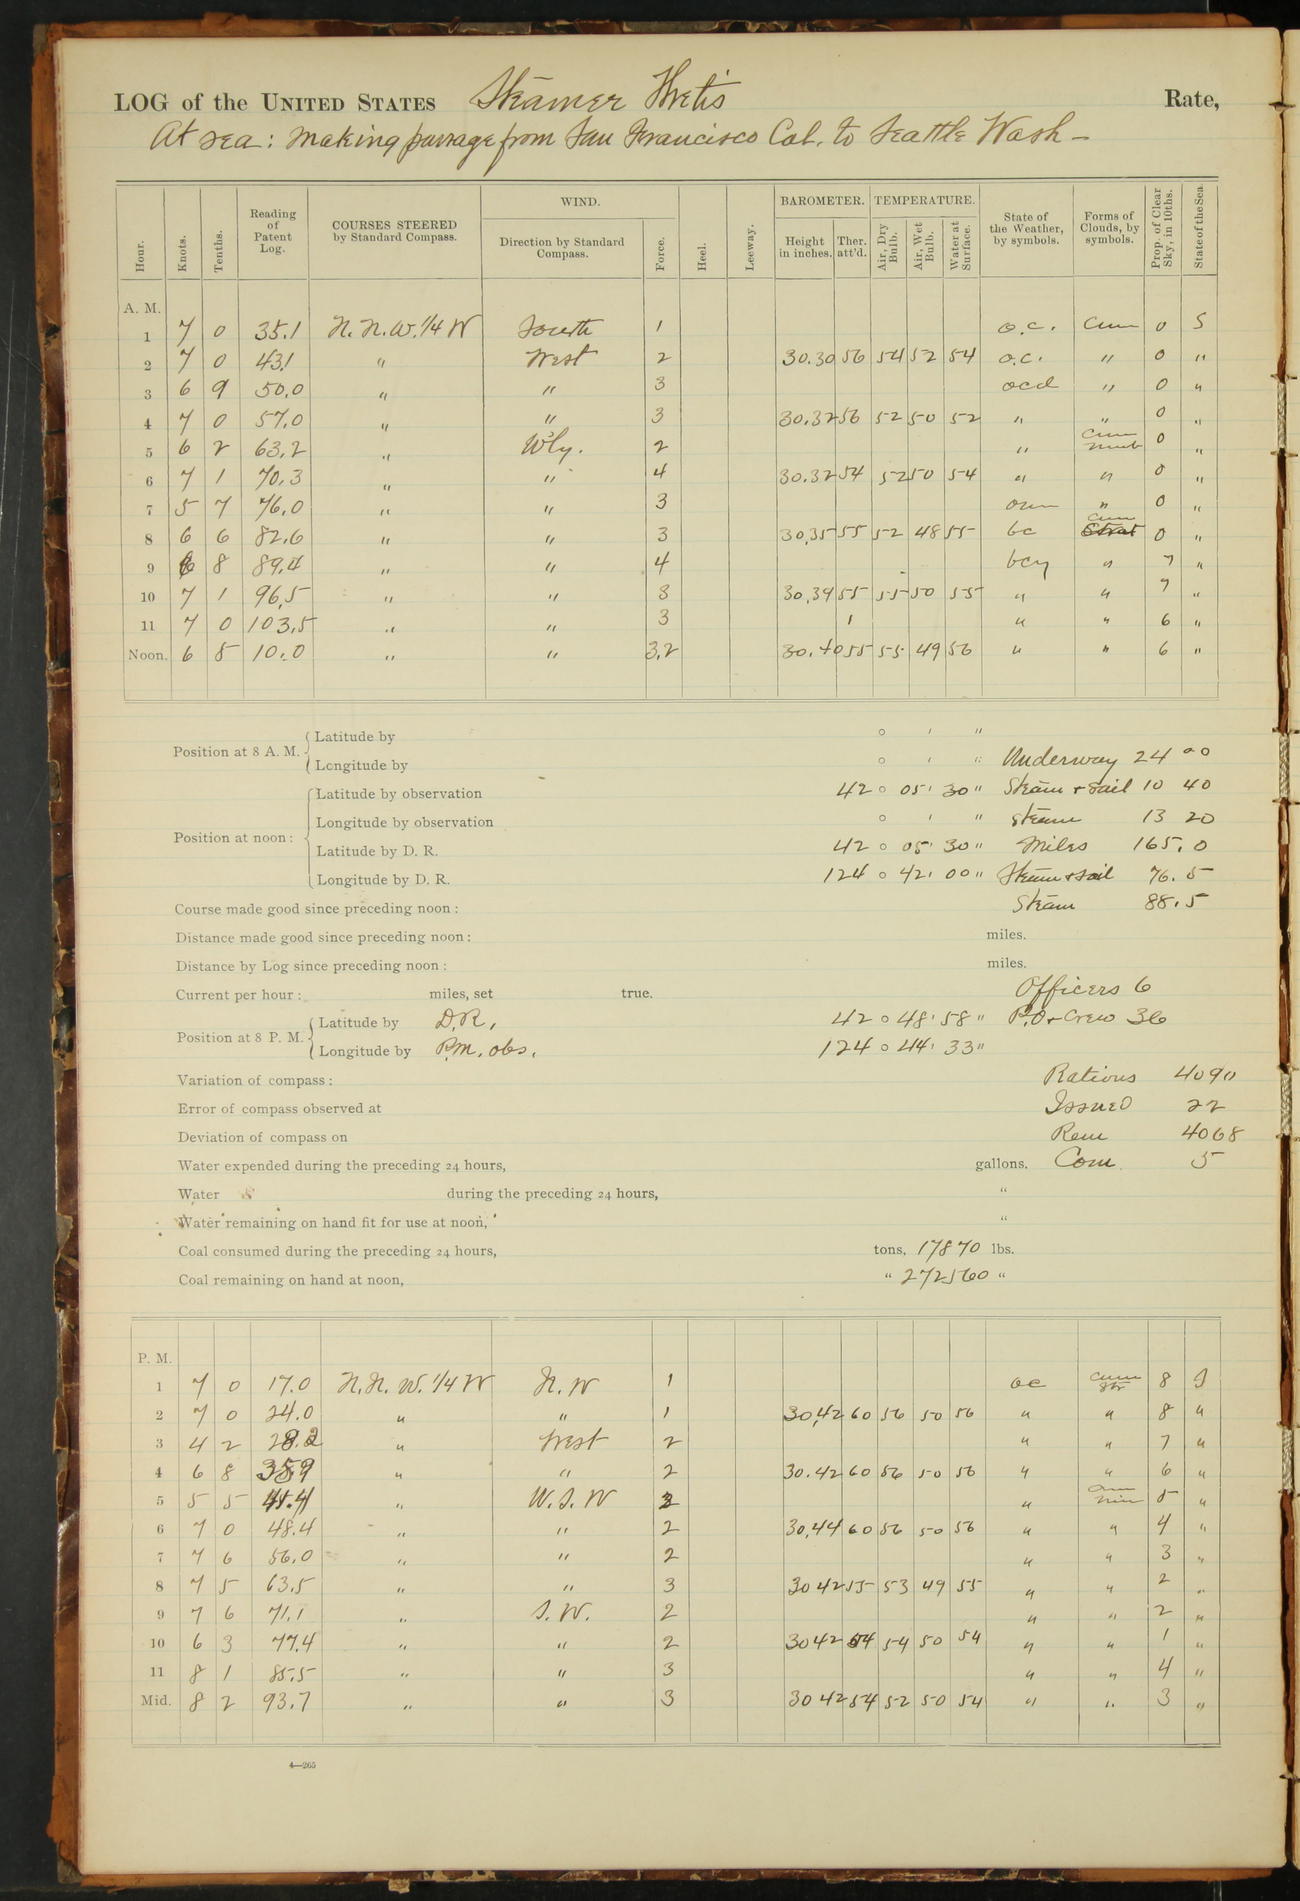 LOG of the UNITED STATES Steamer Thetis Rate,
At sea: Making passage from San Francisco Cal. to Seattle Wash—
Hour. Knots. Tenths. Reading of Patent Log. COURSES STEERED by Standard Compass. WIND. Direction by Standard Compass. Force. Heel. Leeway. BAROMETER. Height in inches. Ther. att'd. TEMPERATURE. Air, Dry Bulb. Air, Wet Bulb. Water at Surface. State of the Weather, by symbols. Forms of Clouds, by symbols. Prop. of Clear Sky, in 10ths. State of the Sea.
A. M.
1 7 0 35.1 N. N. W. 1/4 W South 1 o.c. Cum 0 S
2 7 0 43.1 " West 2 30.30 56 54 52 54 o.c. " 0 "
3 6 9 50.0 " " 3 ocd " 0 "
4 7 0 57.0 " " 3 30.32 56 52 50 52 " " 0 "
5 6 2 63.2 " W'ly. 2 " Cum Nimb 0 "
6 7 1 70.3 " " 4 30.32 54 52 50 54 " " 0 "
7 5 7 76.0 " " 3 oum " 0 "
8 6 6 82.6 " " 3 30.35 55 52 48 55 bc Cum Strat 0 "
9 6 8 89.4 " " 4 bcy " 7 "
10 7 1 96.5 " " 3 30.39 55 55 50 55 " " 7 "
11 7 0 103.5 " " 3 " " 6 "
Noon. 6 5 10.0 " " 3.2 30.40 55 55 49 56 " " 6 "
Position at 8 A. M. Latitude by ° ' "
Longitude by ° ' " Underway 24 00
Position at noon: Latitude by observation 42 ° 05 ' 30 " Steam + sail 10 40
Longitude by observation ° ' " Steam 13 20
Latitude by D. R. 42 ° 05 ' 30 " Miles 165.0
Longitude by D. R. 124 ° 42 ' 00 " Steam + sail 76.5
Course made good since preceding noon: Steam 88.5
Distance made good since preceding noon: miles.
Distance by Log since preceding noon: miles.
Current per hour: miles, set true. Officers 6
Position at 8 P. M. Latitude by D.R. 42 ° 48 ' 58 " P.O + Crew 36
Longitude by P.M. obs. 124 ° 44 ' 33 "
Variation of compass: Rations 4090
Error of compass observed at Issued 22
Deviation of compass on Rem 4068
Water expended during the preceding 24 hours, gallons. Com. 5
Water during the preceding 24 hours, "
Water remaining on hand fit for use at noon, "
Coal consumed during the preceding 24 hours, tons, 17870 lbs.
Coal remaining on hand at noon, " 272560 "
P. M.
1 7 0 17.0 N. N. W. 1/4 W N. W 1 oc Cum Str 8 S
2 7 0 24.0 " " 1 30.42 60 56 50 56 " " 8 "
3 4 2 28.2 " West 2 " " 7 "
4 6 8 35.9 " " 2 30.42 60 56 50 56 " " 6 "
5 5 5 41.4 " W. S. W 2 " Cum Nim 5 "
6 7 0 48.4 " " 2 30.44 60 56 50 56 " " 4 "
7 7 6 56.0 " " 2 " " 3 "
8 7 5 63.5 " " 3 30 42 55 53 49 55 " " 2 "
9 7 6 71.1 " S. W. 2 " " 2 "
10 6 3 77.4 " " 2 30 42 54 54 50 54 " " 1 "
11 8 1 85.5 " " 3 " " 4 "
Mid. 8 2 93.7 " " 3 30 42 54 52 50 54 " " 3 "
4—265